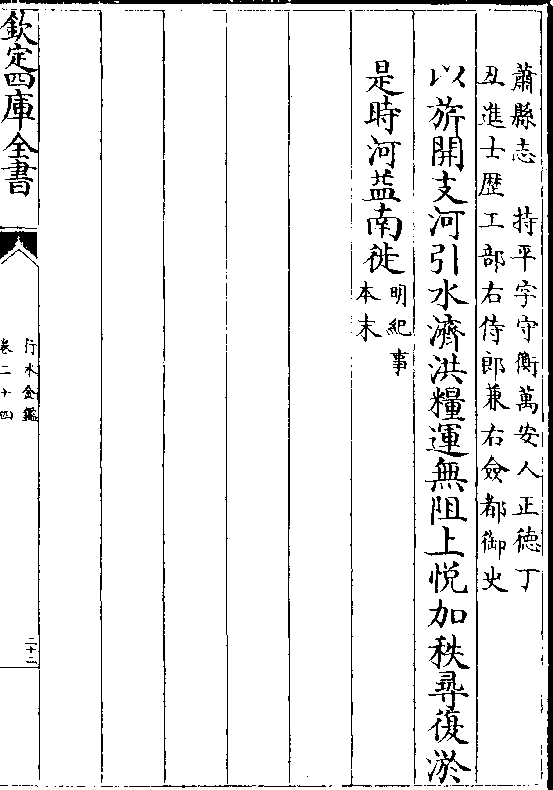 蕭縣志　持平字守衡萬安人正德丁
丑進士歴工部右侍郎兼右僉都御史
以旂開支河引水濟洪糧運無阻上悅加秩尋復淤
是時河益南徙
明紀事
本末
欽定四庫全書
行水金鑑
卷二十四
二十二